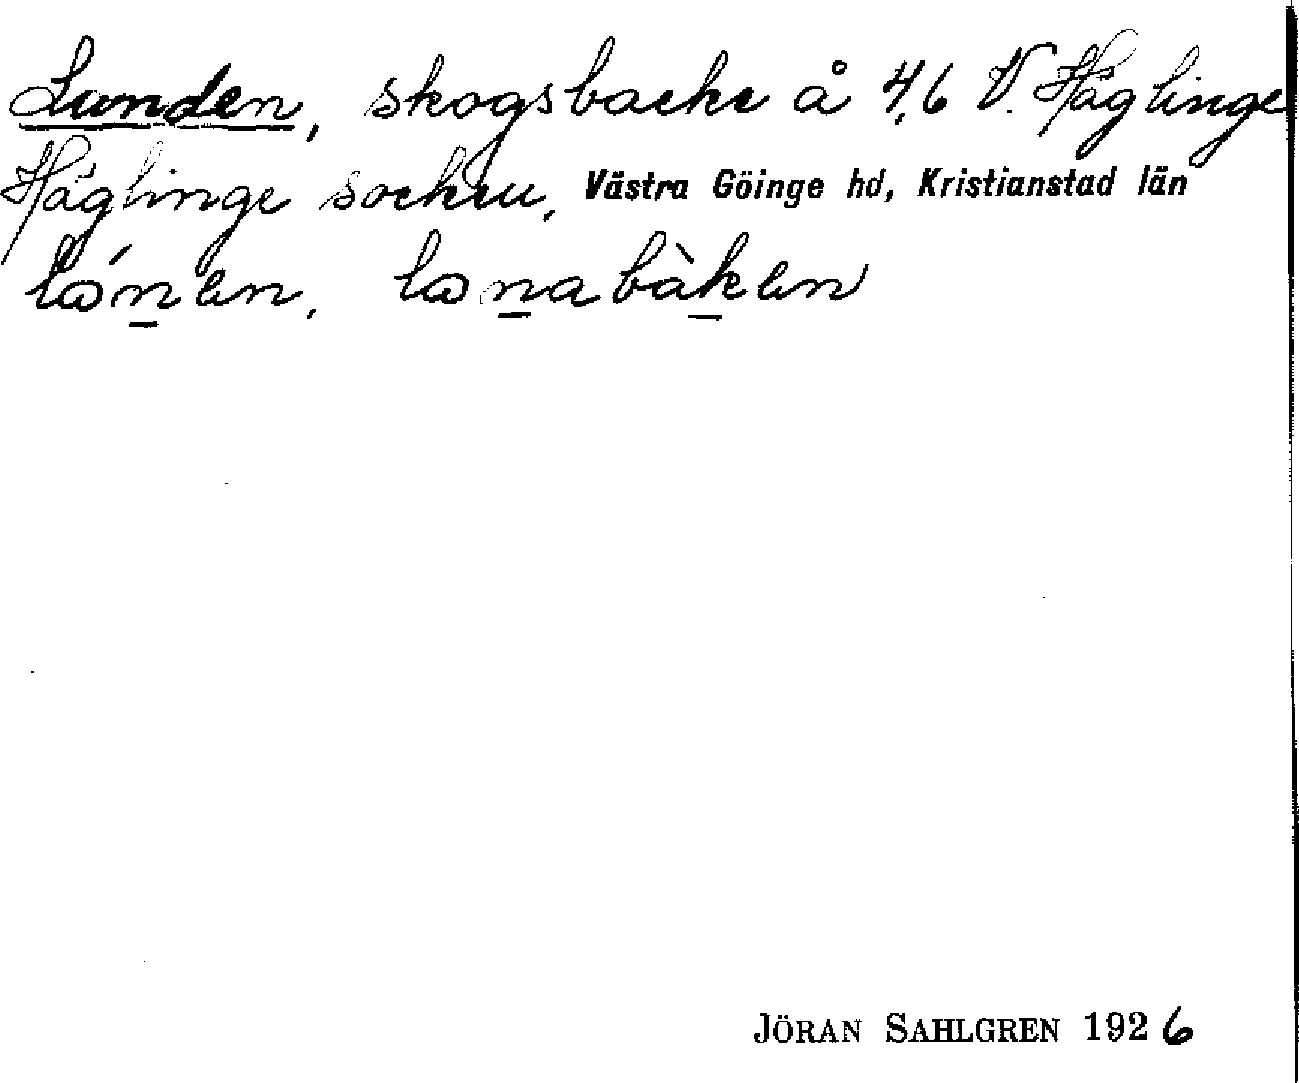 Lunden, skogsbacke å 4,6 V. Häglinge
Häglinge socken, Västra Göinge hd, Kristianstad län
lɷ́n̠en, lɷn̠abàk̠en
JÖRAN SAHLGREN 1926